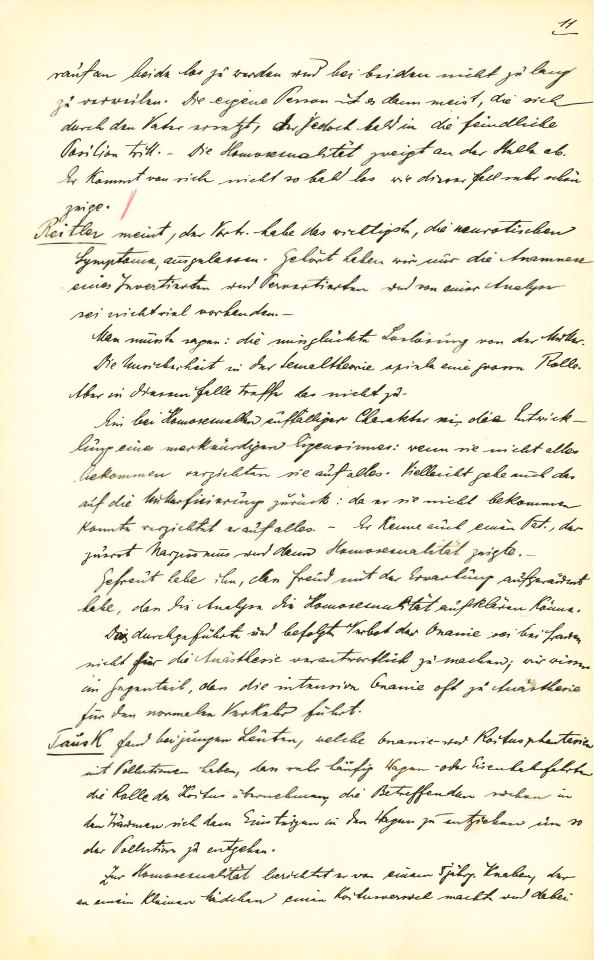 11
rauf an beide los zu werden und bei beiden nicht zu lang
zu verweilen. Die eigene Person ist es dann meist, die sich
durch den Vater ersetzt, der jedoch bald in die feindliche
Position tritt. – Die Homosexualität zweigt an der Stelle ab.
Er kommt von sich nicht so bald los wie dieser Fall sehr schön
zeige.
Reitler meint, der Vortr. habe das wichtigste, die neurotischen
Symptome, ausgelassen. Gehört haben wir nur die Anamnese
eines Invertierten und Pervertierten und von einer Analyse
sei nicht viel vorhanden. –
Man müsste sagen: die missglückte Loslösung von der Mutter.
Die Unsicherheit in der Sexualtheorie spiele eine grosse Rolle.
Aber in diesem Falle treffe das nicht zu.
Ein bei Homosexuellen auffälliger Charakter sei die Entwick-
lung eines merkwürdigen Eigensinnes: wenn sie nicht alles
bekommen verzichten sie auf alles. Vielleicht gehe auch das
auf die Mutterfixierung zurück: da er sie nicht bekommen
konnte verzichtet er auf alles. – Er kenne auch einen Pat., der
zuerst Narzissmus und dann Homosexualität zeigte. –
Gefreut habe ihn, dass Freud mit der Erwartung aufgeräumt
habe, dass die Analyse die Homosexualität aufklären könne.
Das durchgeführte und befolgte Verbot der Onanie sei bei
nicht für die Anästhesie verantwortlich zu machen; wir wissen
im Gegenteil, dass die intensive Onanie oft zu Anästhesie
für den normalen Verkehr führt.
Tausk fand bei jungen Leuten, welche Onanie- und Koitusphantasien
mit Pollutionen haben, dass sehr häufig Wagen- oder Eisenbahnfahrten
die Rolle des Koitus übernehmen, die Betreffenden suchen in
den Träumen sich dem Einsteigen in den Wagen zu entziehen um so
der Pollution zu entgehen.
Zur Homosexualität berichtet er von einem 5jähr. Knaben, der
an einem kleinen Mädchen einen Koitusversuch macht und dabei